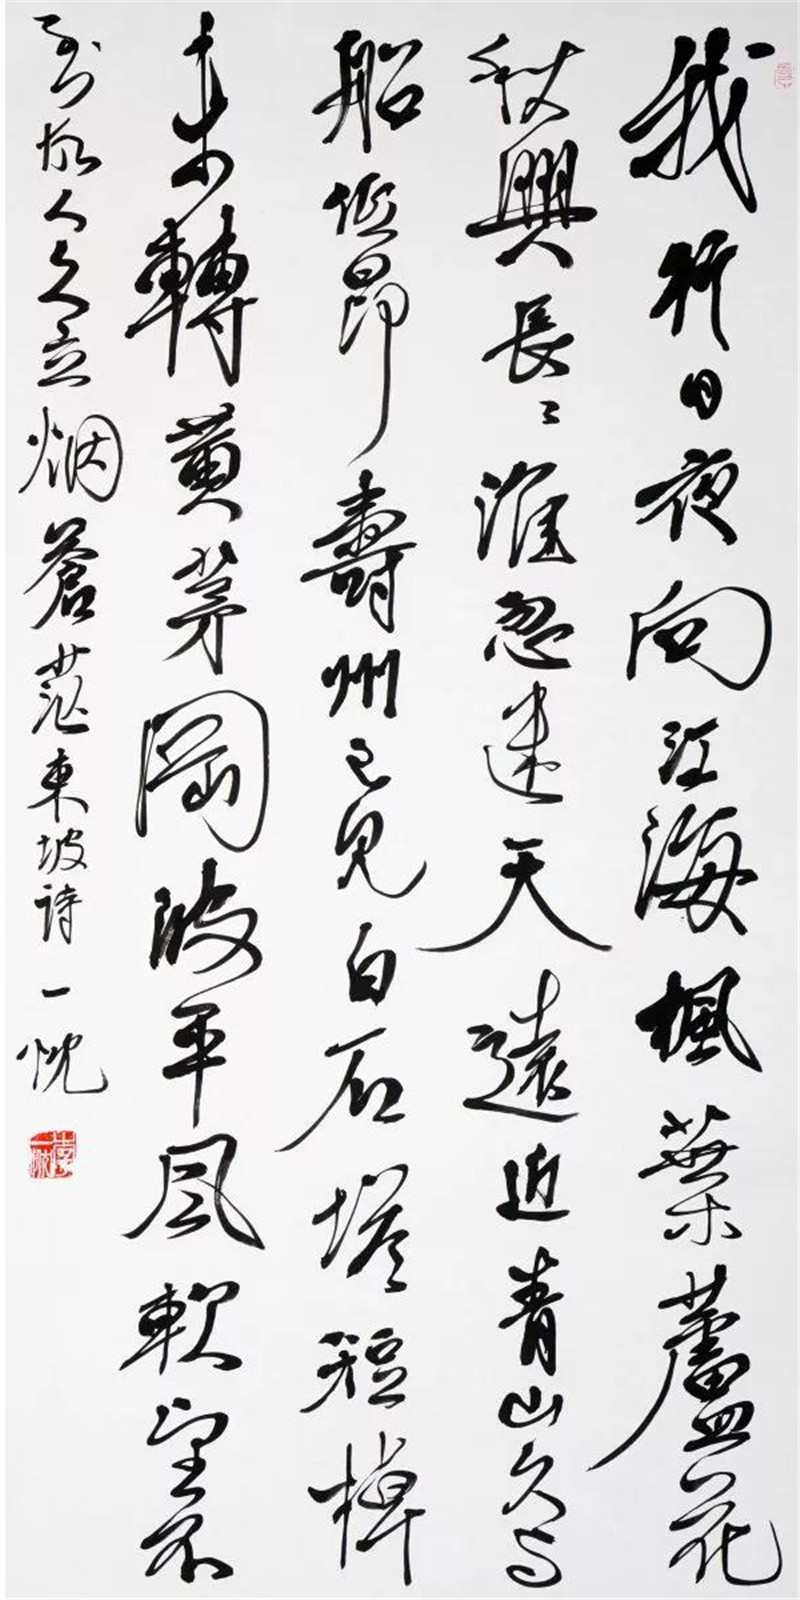 我行日夜向江海楓葉蘆花
秋興長〻淮忽迷天遠近青山久与
船低昂壽州已見白石塔短棹
未轉黄茅岡波平風軟望不
到故人久立烟蒼茫東坡詩一忱